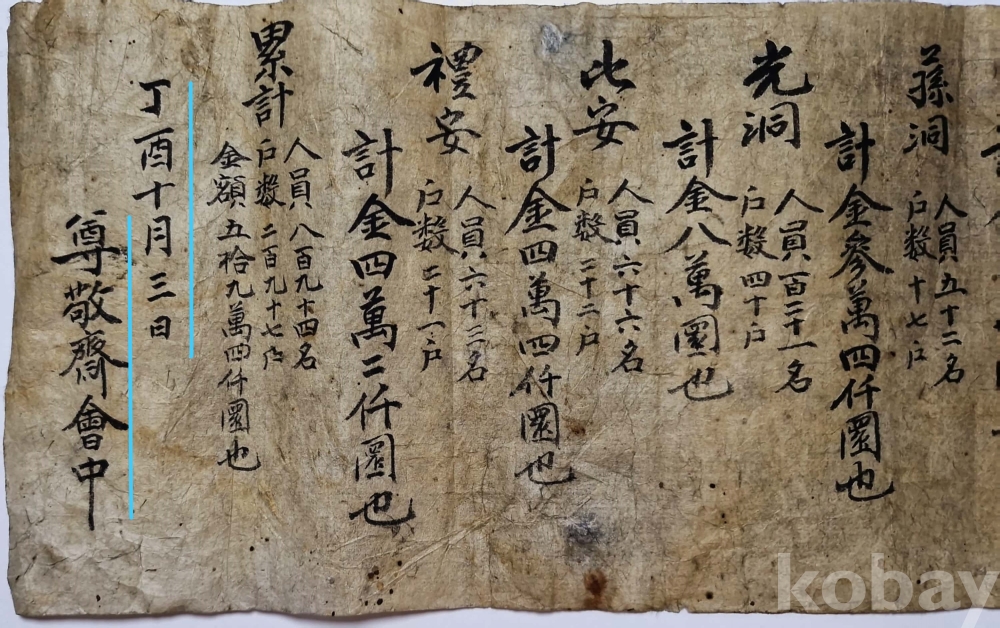 蓀洞
人員五十二名
戶數十七戶
計金參萬四仟圜也
光洞
人員百二十一名
戶數四十戶
計金八萬圜也
比安
人員六十六名
戶數二十二戶
計金四萬四仟圜也
禮安
人員六十三名
戶數二十一戶
計金四萬二仟圜也
累計
人員八百九十四名
戶數二百九十七戶
金額五拾九萬四仟圜也
丁酉十月三日
尊敬齋會中
kobay